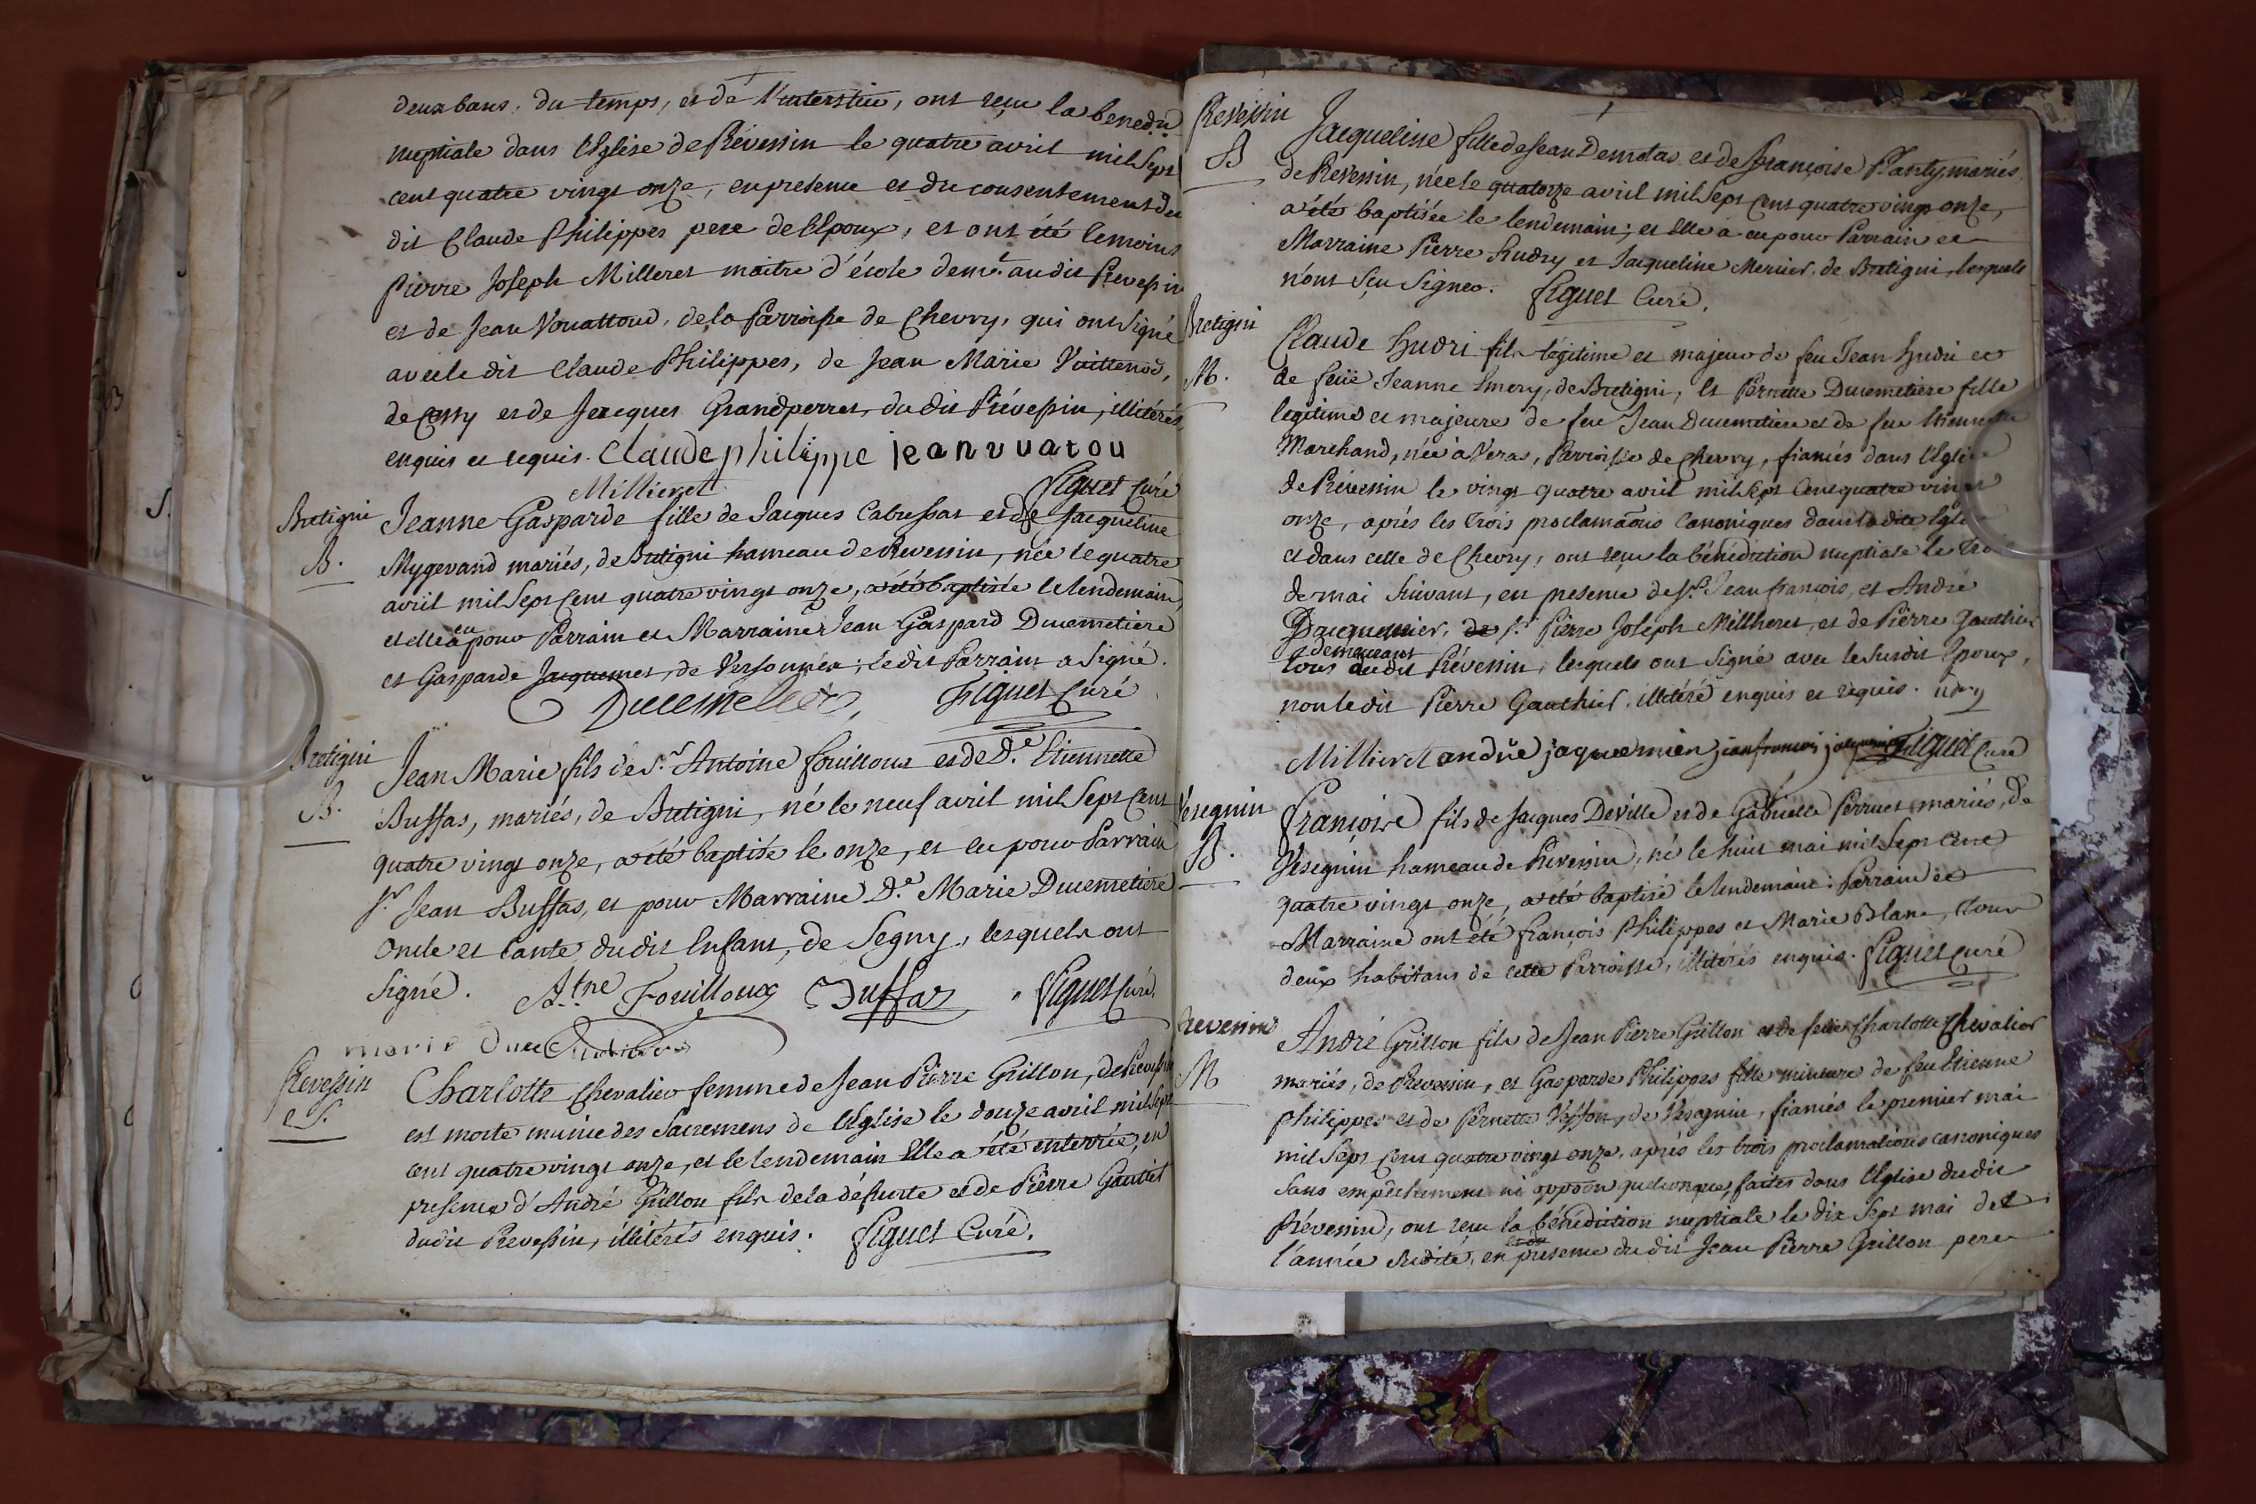 deux bans. du temps, et de l'interstice, ont reçu la bened.on
nuptiale dans l'Eglise de Prévessin le quatre avril mil Sept
cent quatre vingt onze, en presence et du consentement du
dit Claude Philippes pere de l'Epoux, et ont été temoins
Pierre Joseph Milleret maitre d'école dem.t audit Prevessin
et de Jean Vouattoud, de la Parroisse de Chevry, qui ont signé
avec le dit Claude Philippes, de Jean Marie Vuittenod,
de Cessy et de Jacques Grandperret, du dit Prévessin, illitérés
enquis et requis. Claude philippe jean vuatou
Millieret Figuet Curé
Bretigni
B.
Jeanne Gasparde fille de Jacques Cabussat et de Jacqueline
Mygerand mariés, de Bretigni hameau de Prevessin, née le quatre
avril mil Sept Cent quatre vingt onze, a été baptisée le lendemain,
et elle a eu pour Parrain et Marraine Jean Gaspard Ducimetiere
et Gasparde Jacquemet, de Versonnex; le dit Parrain a signé.
Figuet Curé
Bretigni
B.
Jean Marie fils de S.r Antoine fouilloux et de D.e Etiennette
Buffas, mariés, de Bretigni, né le neuf avril mil Sept Cent
quatre vingt onze, a été baptisé le onze, et eu pour Parrain
S.r Jean Buffas, et pour Marraine D.e Marie Ducimetiere
oncle et tante dudit Enfant, de Segny, lesquels ont
signé. A.tne Fouilloux Buffaz Figuet Curé.
marie
Prevessin
S.
Charlotte Chevalier femme de Jean Pierre Grillon, de Prevessin
est morte munie des Sacremens de l'Eglise le douze avril mil Sept
cent quatre vingt onze, et le lendemain Elle a été enterrée, en
presence d'André Grillon fils de la défunte et de Pierre Gautier
dudit Prevessin, illitérés enquis. Figuet Curé.
Prevessin
B
Jacqueline fille de Jean Demolas et de Françoise Planty mariés
de Prevessin, née le quatorze avril mil Sept Cent quatre vingt onze,
a été baptisée le lendemain; et Elle a eu pour Parrain et
Marraine Pierre hudry et Jacqueline Mercier de Bretigni, lesquels
n'ont sçu signer. Figuet Curé.
Bretigni
M.
Claude hudri fils légitime et majeur de feu Jean hudri et
de feüe Jeanne Emery, de Bretigni, et Pernette Ducimetiere fille
legitime et majeure de feu Jean Ducimetiere et de feu
Marchand, née à Veraz, Parroisse de Chevry, fiancés dans l'Eglise
de Prévessin le vingt quatre avril mil Sept Cent quatre vingt
onze, aprés les trois proclamaôns Canoniques dans la dite Eglise
et dans celle de Chevry, ont reçu la bénédiction nuptiale le trois
de mai suivant, en presence de S.r Jean françois, et André
Dacquemier, de S.r Pierre Joseph Millheret, et de Pierre Gauthier
demeurant
tous audit Prévessin, lesquels ont signé avec le susdit Epoux,
non le dit Pierre Gauthier, illitéré enquis et requis. udry
Millieret andrë jaquemier jean francois Figuet Curé
Vesegnin
B.
François fils de Jacques Deville et de Gabrielle Perruet mariés, de
Vesegnin hameau de Prevessin, né le huit mai mil Sept Cent
quatre vingt onze, a été baptisé le lendemain: Parrain et
Marraine ont été françois Philippes et Marie Blanc, tous
deux habitans de cette Parroisse, illitérés enquis. Figuet Curé
Prevessin
M
André Grillon fils de Jean Pierre Grillon et de feüe Charlotte Chevalier
mariés, de Prevessin, et Gasparde Philippes fille mineure de feu Etienne
Philippes et de Pernette Vesson, de Vesegnin, fiancés le premier mai
mil Sept Cent quatre vingt onze, aprés les trois proclamations canoniques
sans empêchement ni oppôon quelconque, faites dans l'Eglise dudit
Prévessin, ont reçu la bénédiction nuptiale le dix Sept mai de
l'année susdite, en presence du dit Jean Pierre Grillon pere